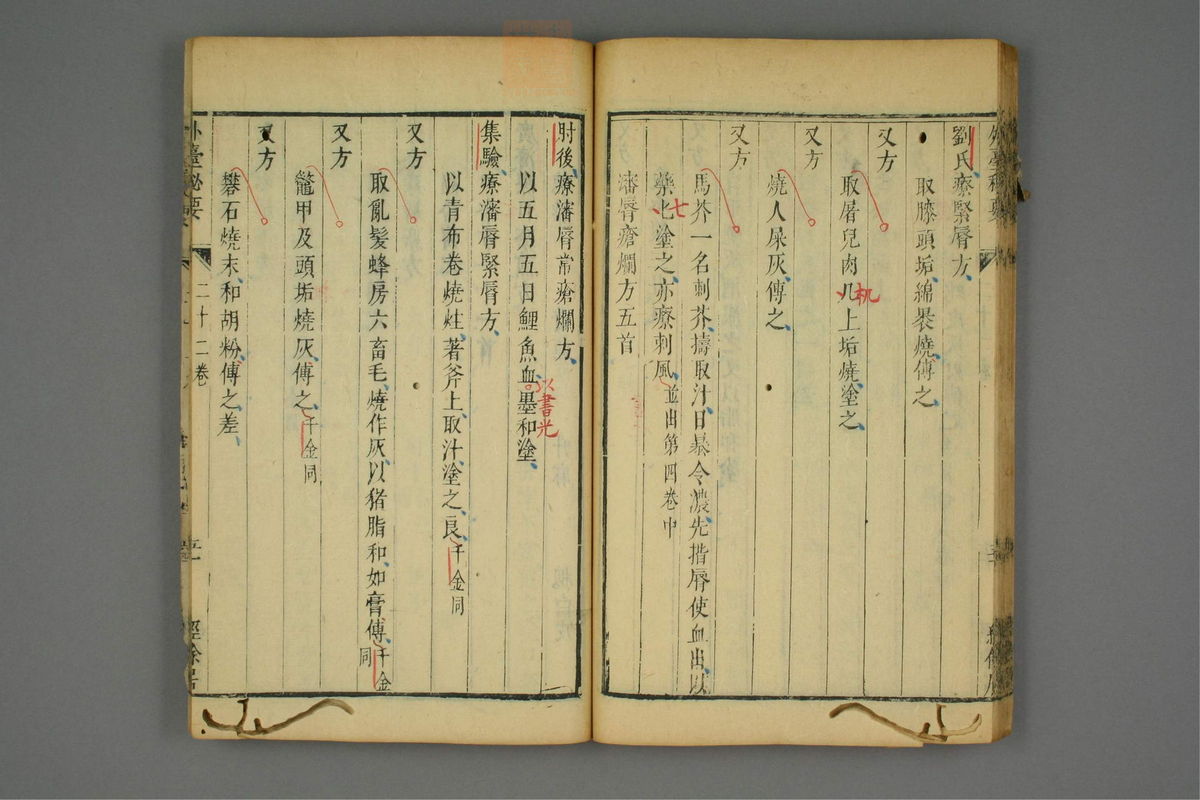 劉氏療緊脣方
取膝頭垢綿裹燒傅之
又方
取屠兒肉几上垢燒塗之
机
又方
燒人屎灰傅之
又方
馬芥一名刺芥擣取汁日暴令濃先揩脣使血出以
藥匕塗之亦療刺風並出第四卷中
七
瀋脣瘡爛方五首
肘後療瀋脣常瘡爛方
以五月五日鯉魚血墨和塗
集驗療瀋脣緊脣方
以青布卷燒炷著斧上取汁塗之良千金同
又方
取亂髮蜂房六畜毛燒作灰以猪脂和如膏傅千金同
又方
鼈甲及頭垢燒灰傅之千金同
又方
礬石燒末和胡粉傅之差
外臺祕要
二十二卷